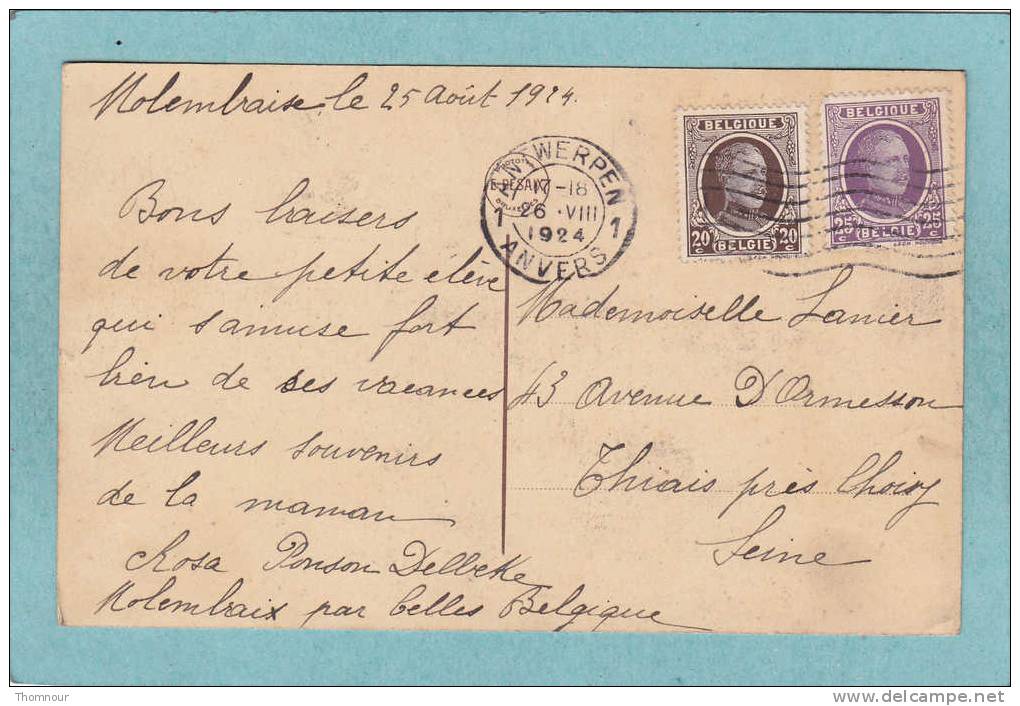 Molembraise le 25 Août 1924.
Bons baisers
de votre petite élève
qui s'amuse fort
bien de ses vacances
Meilleurs souvenirs
de la maman
Rosa Ponson Delbeke
Molembaix par Celles Belgique
ANTWERPEN
17-18
26 VIII
1924
1 1
ANVERS
E. DESAIX
BELGIQUE
20c 20c
BELGIE
BELGIQUE
25c 25c
BELGIE
Mademoiselle Lanier
43 Avenue D'Ormesson
Thiais près Choisy
Seine
Thomnour
http://www.delcampe.net